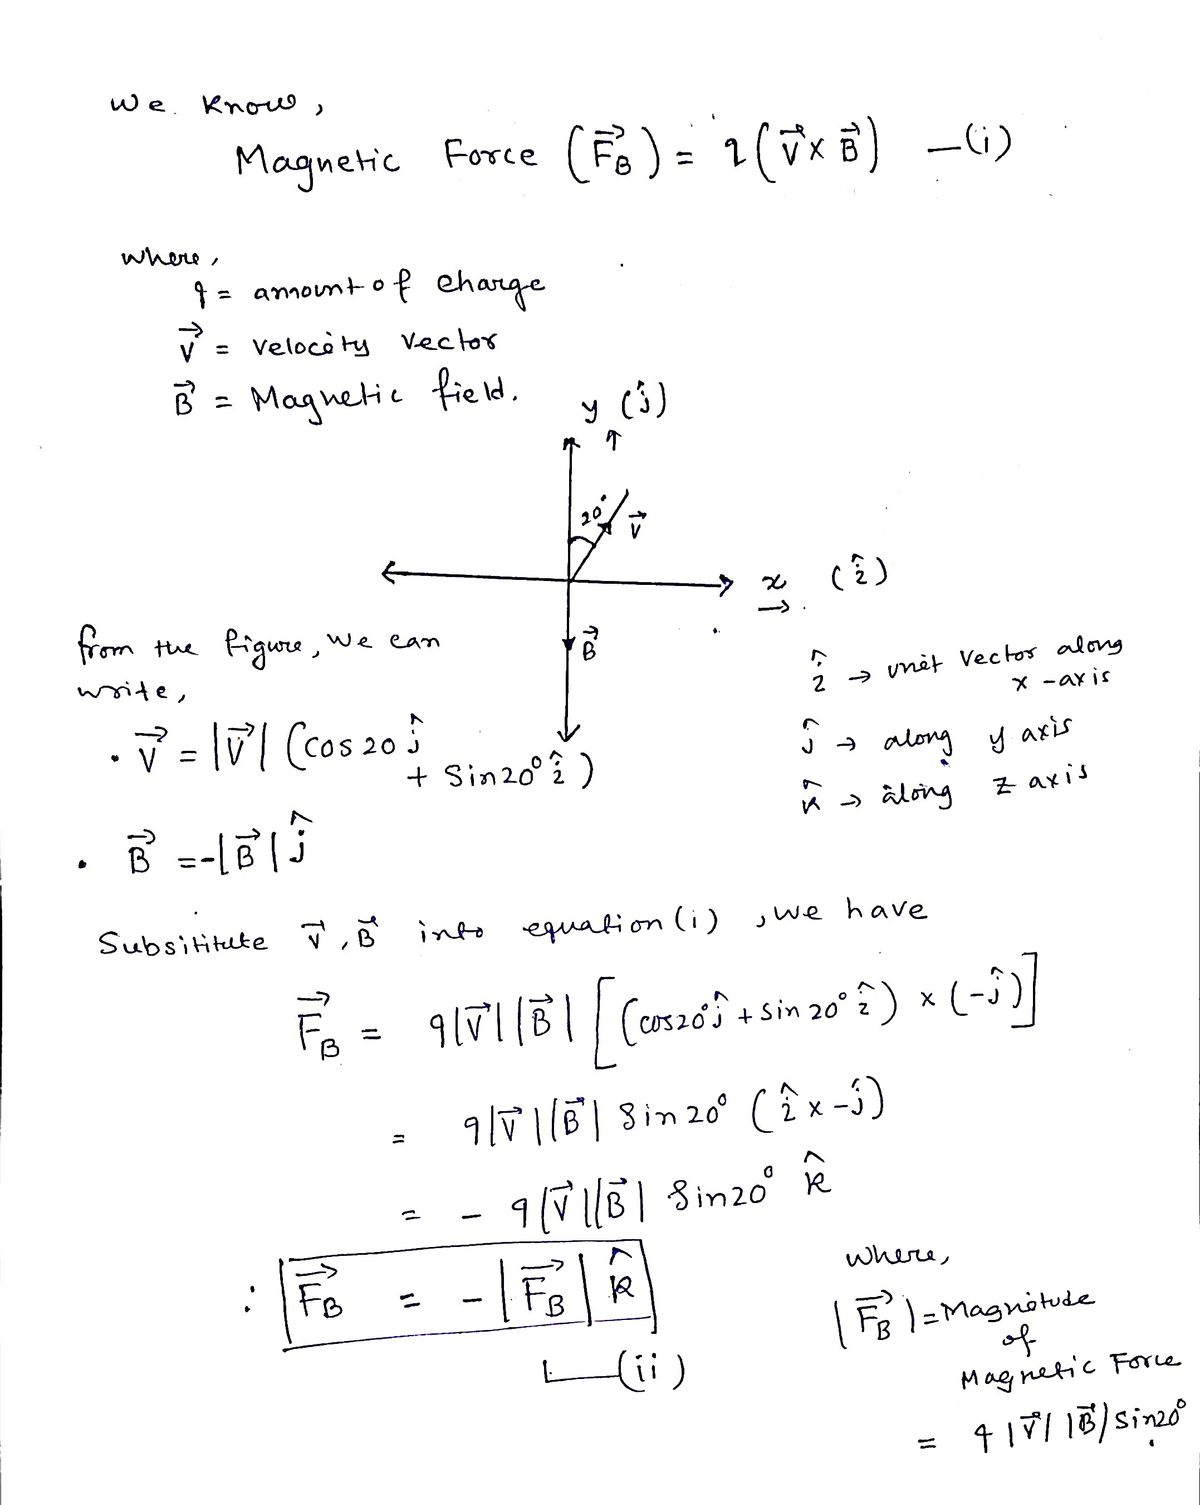 We Know,
Magnetic Force (F⃗_B) = q(V⃗ × B⃗) —(i)
where,
q = amount of charge
V⃗ = velocity vector
B⃗ = Magnetic field.
y (ĵ)
↑
20°
V⃗
x (î)
→
B⃗
from the figure, we can
write,
î → unit Vector along
x-axis
ĵ → along y axis
k̂ → along z axis
• V⃗ = |V⃗| (cos 20 ĵ
+ Sin20° î)
• B⃗ = -|B⃗| ĵ
Subsititute V⃗, B⃗ into equation(i), we have
F⃗_B = q|V⃗||B⃗| [(cos20° ĵ + sin 20° î) × (-ĵ)]
= q|V⃗||B⃗| Sin 20° (î × -ĵ)
= - q|V⃗||B⃗| Sin20° k̂
∴ F⃗_B = - |F⃗_B| k̂
(ii)
where,
|F⃗_B| = Magnitude
of
Magnetic Force
= q |V⃗| |B⃗| sin20°